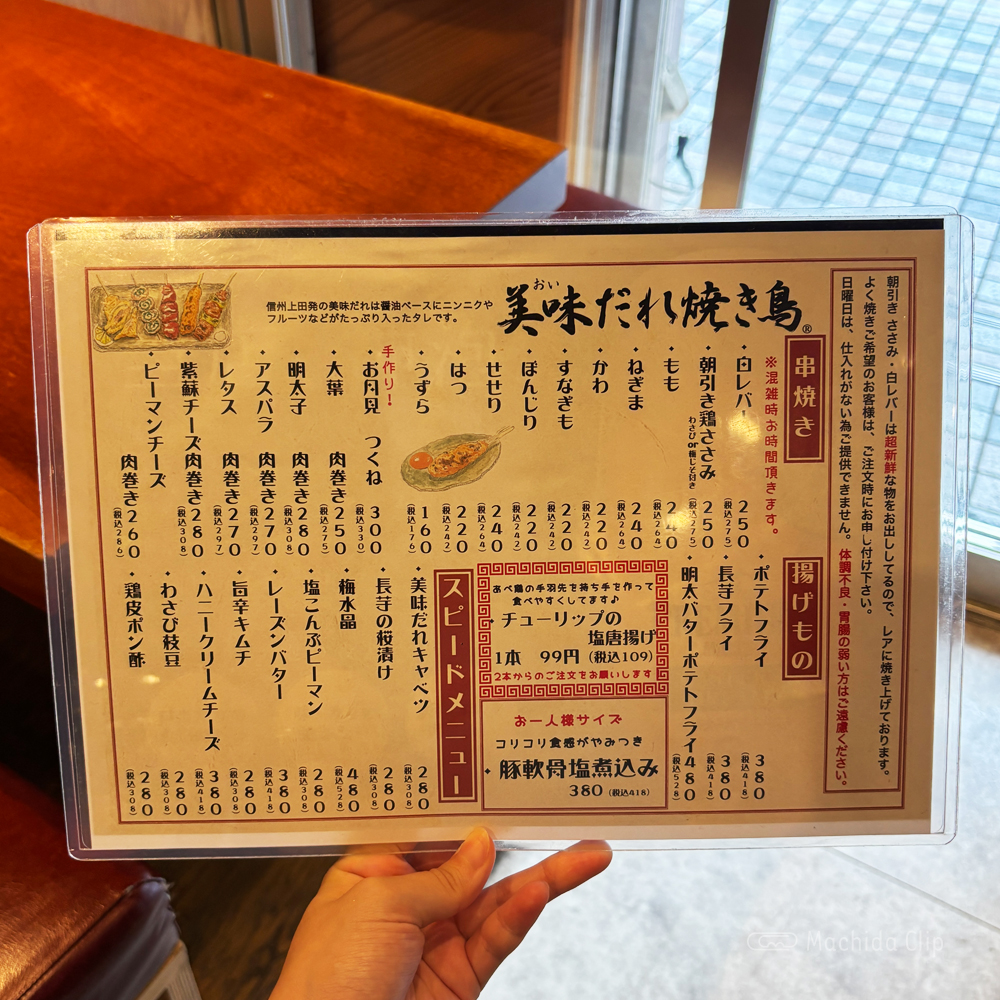 朝引き ささみ・白レバーは超新鮮な物をお出ししてるので、レアに焼き上げております。
よく焼きご希望のお客様は、ご注文時にお申し付け下さい。
日曜日は、仕入れがない為ご提供できません。体調不良・胃腸の弱い方はご遠慮ください。
おい
美味だれ焼き鳥®
信州上田発の美味だれは醤油ベースにニンニクや
フルーツなどがたっぷり入ったタレです。
串焼き
※混雑時お時間頂きます。
・白レバー 250 (税込275)
・朝引き鶏ささみ わさび or 梅しそ付き 250 (税込275)
・もも 240 (税込264)
・ねぎま 240 (税込264)
・かわ 220 (税込242)
・すなぎも 220 (税込242)
・ぼんじり 220 (税込242)
・せせり 240 (税込264)
・はつ 220 (税込242)
・うずら 160 (税込176)
手作り!
・お月見 つくね 300 (税込330)
・大葉 肉巻き 250 (税込275)
・明太子 肉巻き 280 (税込308)
・アスパラ 肉巻き 270 (税込297)
・レタス 肉巻き 270 (税込297)
・紫蘇チーズ肉巻き 280 (税込308)
・ピーマンチーズ肉巻き 260 (税込286)
揚げもの
・ポテトフライ 380 (税込418)
・長芋フライ 380 (税込418)
・明太バターポテトフライ 480 (税込528)
あべ鶏の手羽先を持ち手を作って
食べやすくしてます♪
・チューリップの
塩唐揚げ
1本 99円 (税込109)
2本からのご注文をお願いします
お一人様サイズ
コリコリ食感がやみつき
・豚軟骨塩煮込み
380 (税込418)
スピードメニュー
・美味だれキャベツ 280 (税込308)
・長芋の桜漬け 280 (税込308)
・梅水晶 480 (税込528)
・塩こんぶピーマン 280 (税込308)
・レーズンバター 380 (税込418)
・旨辛キムチ 280 (税込308)
・ハニークリームチーズ 380 (税込418)
・わさび枝豆 280 (税込308)
・鶏皮ポン酢 280 (税込308)
Machida Clip